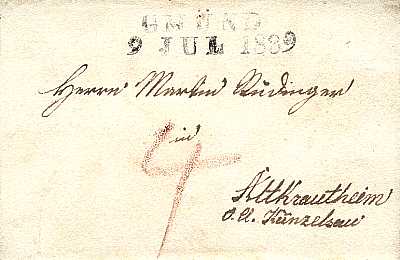 GMÜND
9 JUL 1839
Herrn Martin Rüdinger
in
4
Altkrautheim
O. A. Künzelsau